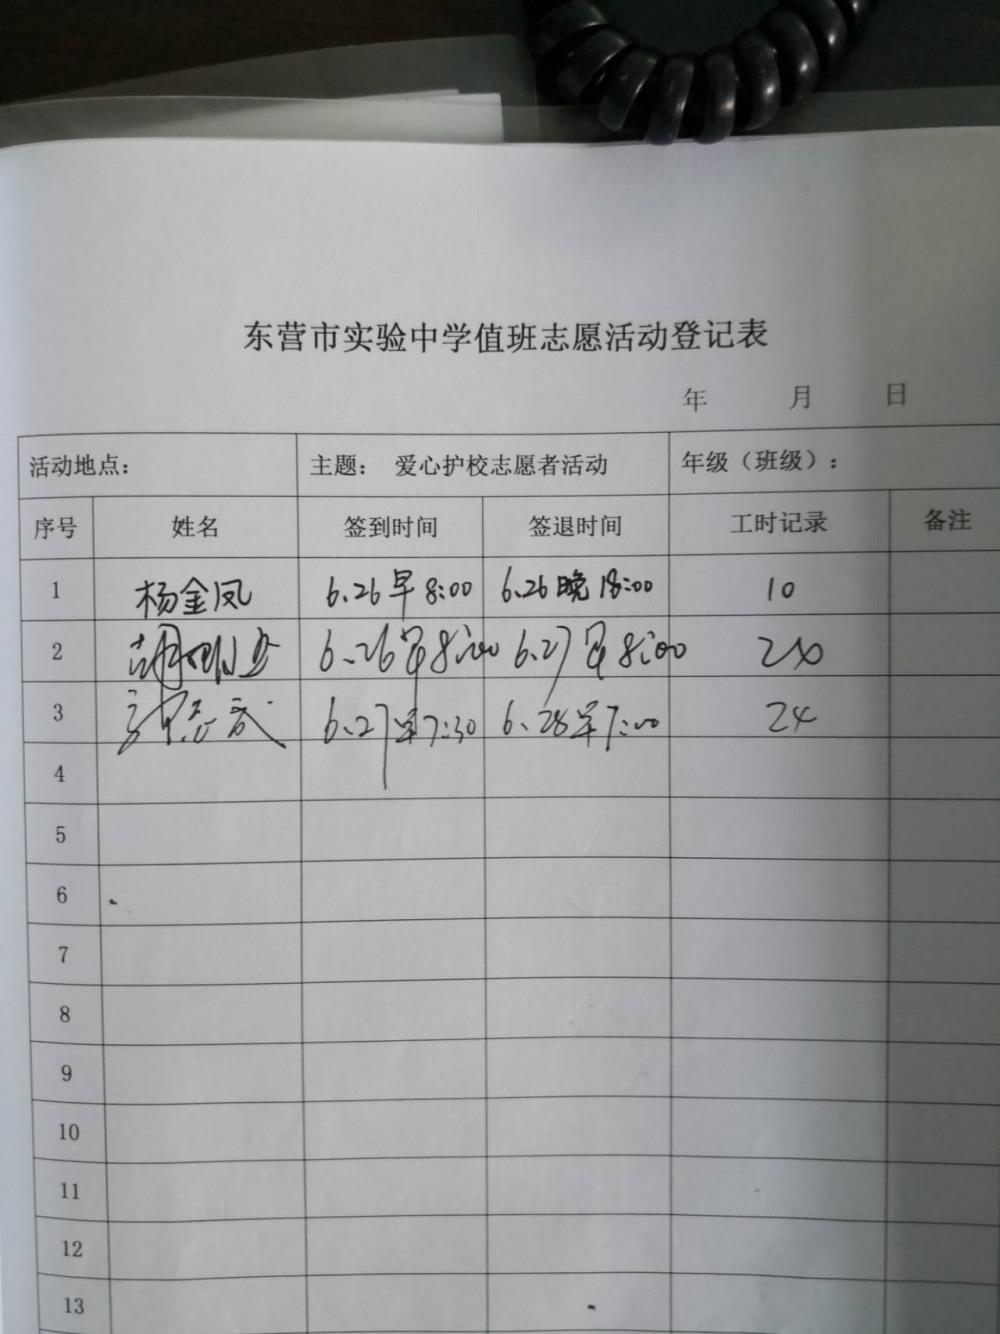 东营市实验中学值班志愿活动登记表
年 月 日
活动地点： 主题： 爱心护校志愿者活动 年级（班级）：
序号 姓名 签到时间 签退时间 工时记录 备注
1 杨金凤 6.26早8:00 6.26晚18:00 10
2 6.26早8:00 6.27早8:00 24
3 6.27早7:30 6.28早7:00 24
4
5
6
7
8
9
10
11
12
13